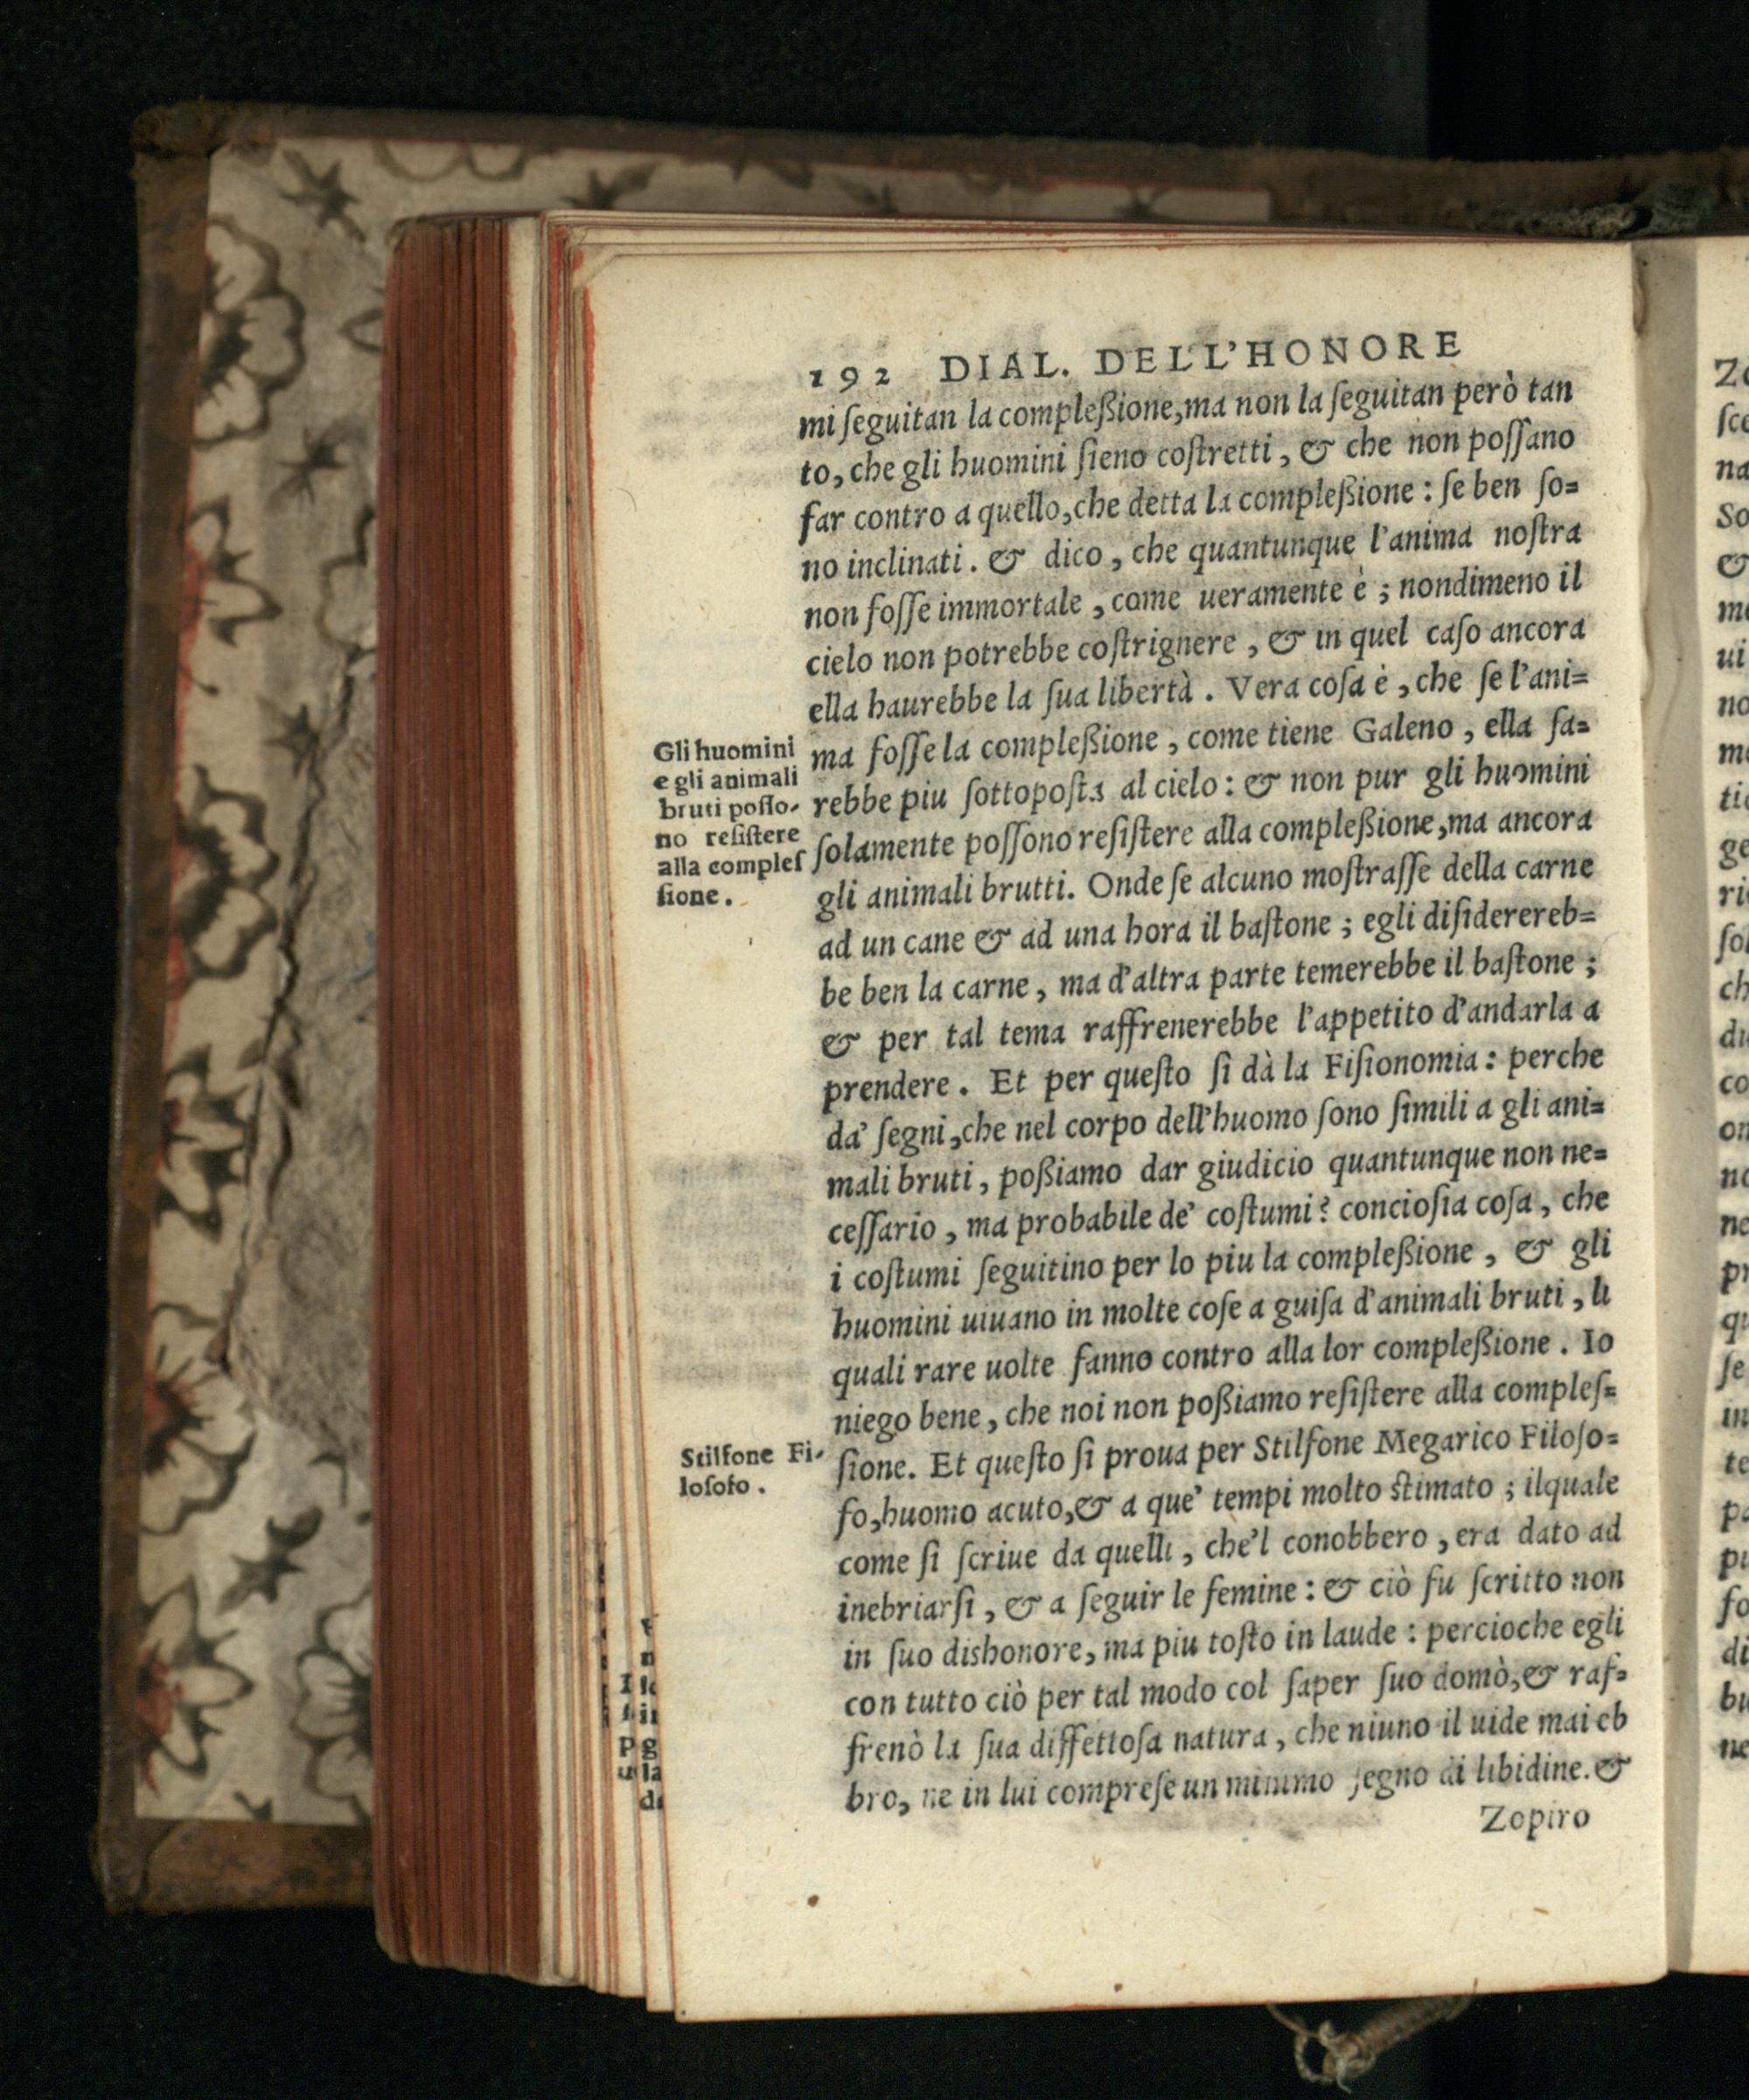 192 DIAL. DELL'HONORE
mi ſeguitan la compleßione,ma non la ſeguitan però tan
to, che gli huomini ſieno coſtretti, & che non poſſano
far contro a quello,che detta la compleßione: ſe ben ſo=
no inclinati. & dico, che quantunque l'anima noſtra
non foſſe immortale, come ueramente è; nondimeno il
cielo non potrebbe coſtrignere, & in quel caſo ancora
ella haurebbe la ſua libertà. Vera coſa è, che ſe l'ani=
ma foſſe la compleßione, come tiene Galeno, ella ſa=
rebbe piu ſottopoſta al cielo: & non pur gli huomini
ſolamente poſſono reſiſtere alla compleßione,ma ancora
gli animali brutti. Onde ſe alcuno moſtraſſe della carne
ad un cane & ad una hora il baſtone; egli diſiderereb=
be ben la carne, ma d'altra parte temerebbe il baſtone;
& per tal tema raffrenerebbe l'appetito d'andarla a
prendere. Et per queſto ſi dà la Fiſionomia: perche
da' ſegni,che nel corpo dell'huomo ſono ſimili a gli ani=
mali bruti, poßiamo dar giudicio quantunque non ne=
ceſſario, ma probabile de' coſtumi? concioſia coſa, che
i coſtumi ſeguitino per lo piu la compleßione, & gli
huomini uiuano in molte coſe a guiſa d'animali bruti, li
quali rare uolte fanno contro alla lor compleßione. Io
niego bene, che noi non poßiamo reſiſtere alla compleſ=
ſione. Et queſto ſi proua per Stilfone Megarico Filoſo=
fo,huomo acuto,& a que' tempi molto ſtimato; ilquale
come ſi ſcriue da quelli, che'l conobbero, era dato ad
inebriarſi, & a ſeguir le femine: & ciò fu ſcritto non
in ſuo dishonore, ma piu toſto in laude: percioche egli
con tutto ciò per tal modo col ſaper ſuo domò,& raf=
frenò la ſua diffettoſa natura, che niuno il uide mai eb
bro, ne in lui compreſe un minimo ſegno di libidine. &
Zopiro
Gli huomini
e gli animali
bruti poſſo-
no reſiſtere
alla compleſ
ſione.
Stilfone Fi-
loſofo.